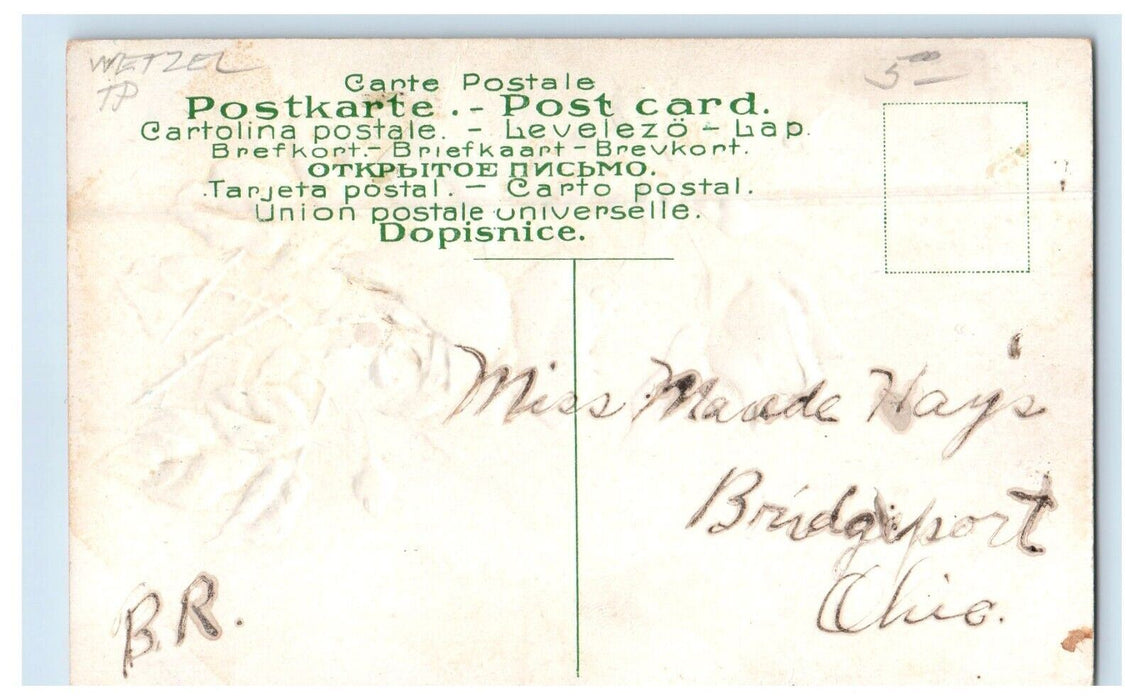 WETZEL
TP
5.00
Carte Postale
Postkarte. - Post card.
Cartolina postale. - Levelezö - Lap.
Brefkort. - Briefkaart - Brevkort.
ОТКРЫТОЕ ПИСЬМО.
Tarjeta postal. - Carto postal.
Union postale universelle.
Dopisnice.
Miss Maude Hay's
Bridgeport
Ohio.
B.R.